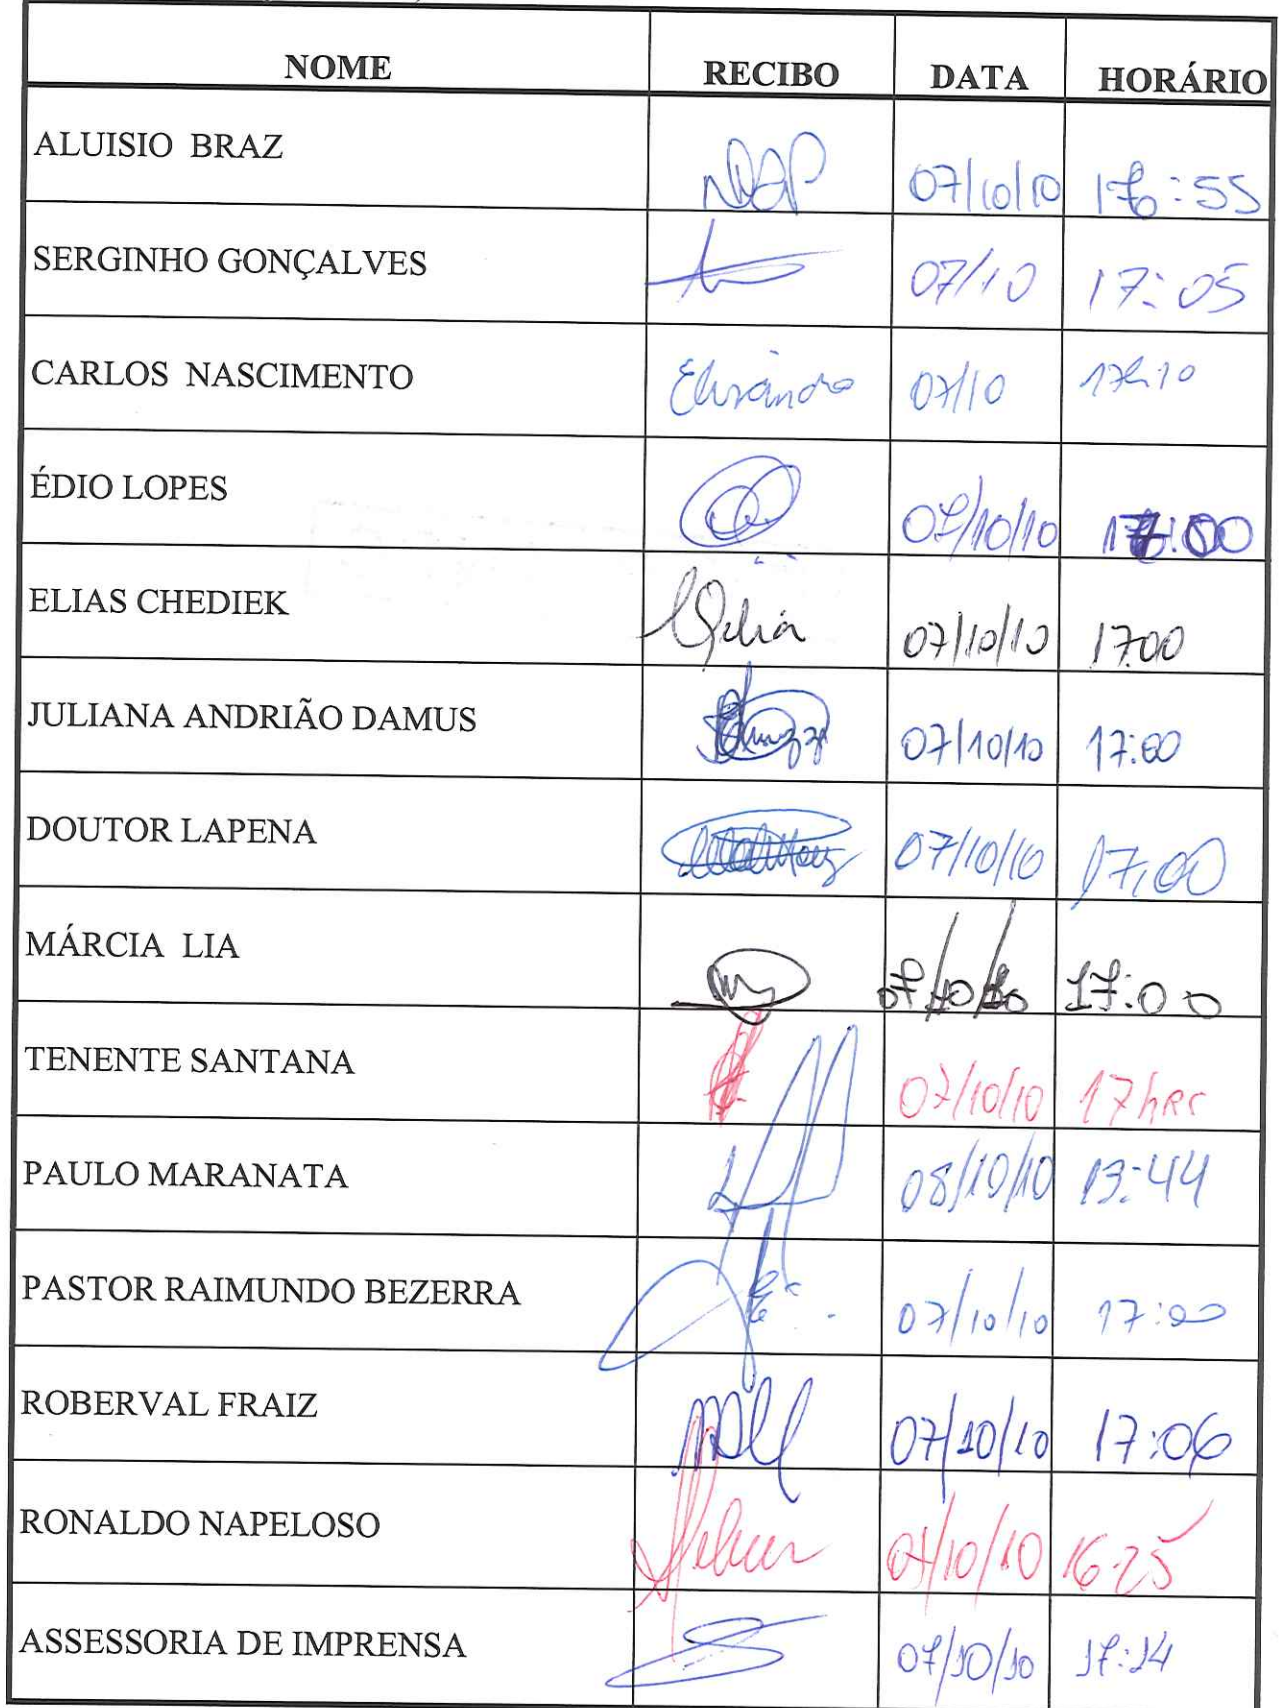 NOME RECIBO DATA HORÁRIO
ALUISIO BRAZ 07/10/10 :55
SERGINHO GONÇALVES 07/10 17:05
CARLOS NASCIMENTO 07/10 17h10
ÉDIO LOPES 07/10/10
ELIAS CHEDIEK 07/10/10 1700
JULIANA ANDRIÃO DAMUS 07/10/10 17:00
DOUTOR LAPENA 07/10/10 17,00
MÁRCIA LIA 07/10/10 17:00
TENENTE SANTANA 07/10/10 17hrs
PAULO MARANATA 08/10/10 13:44
PASTOR RAIMUNDO BEZERRA 07/10/10 17:00
ROBERVAL FRAIZ 07/10/10 17:06
RONALDO NAPELOSO 07/10/10 16-25
ASSESSORIA DE IMPRENSA 07/10/10 17:14